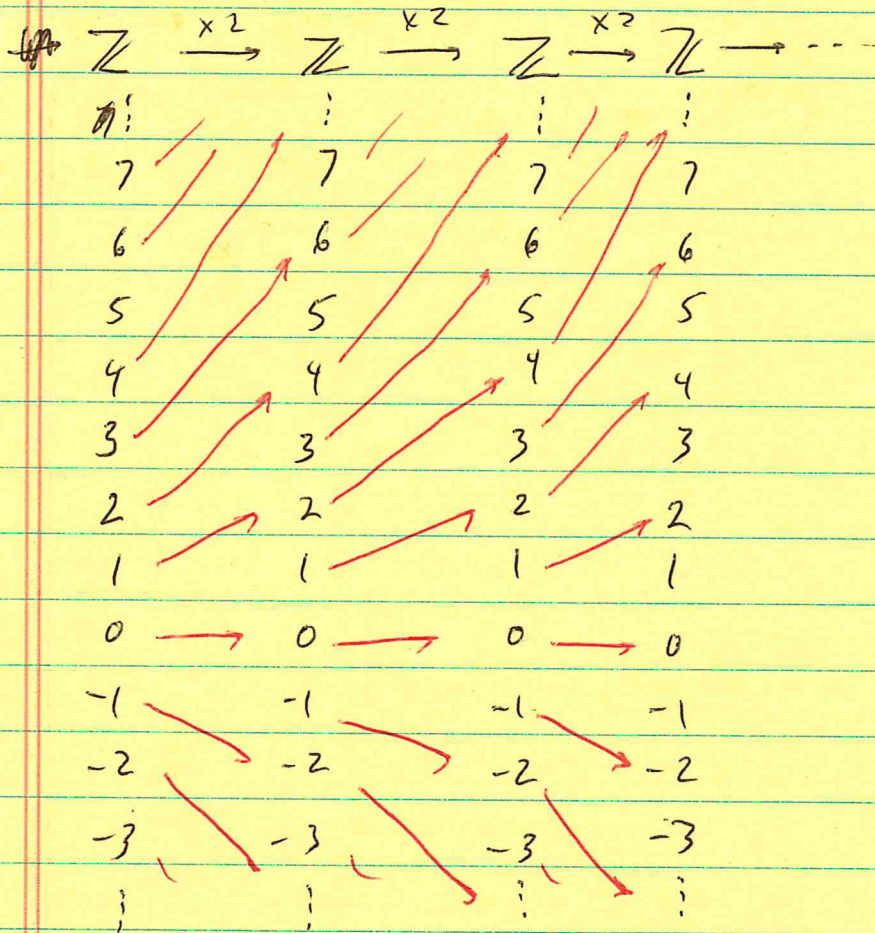 ℤ ×2→ ℤ ×2→ ℤ ×2→ ℤ → ----
⋮ ⋮ ⋮ ⋮
7 7 7 7
6 6 6 6
5 5 5 5
4 4 4 4
3 3 3 3
2 2 2 2
1 1 1 1
0 0 0 0
-1 -1 -1 -1
-2 -2 -2 -2
-3 -3 -3 -3
⋮ ⋮ ⋮ ⋮